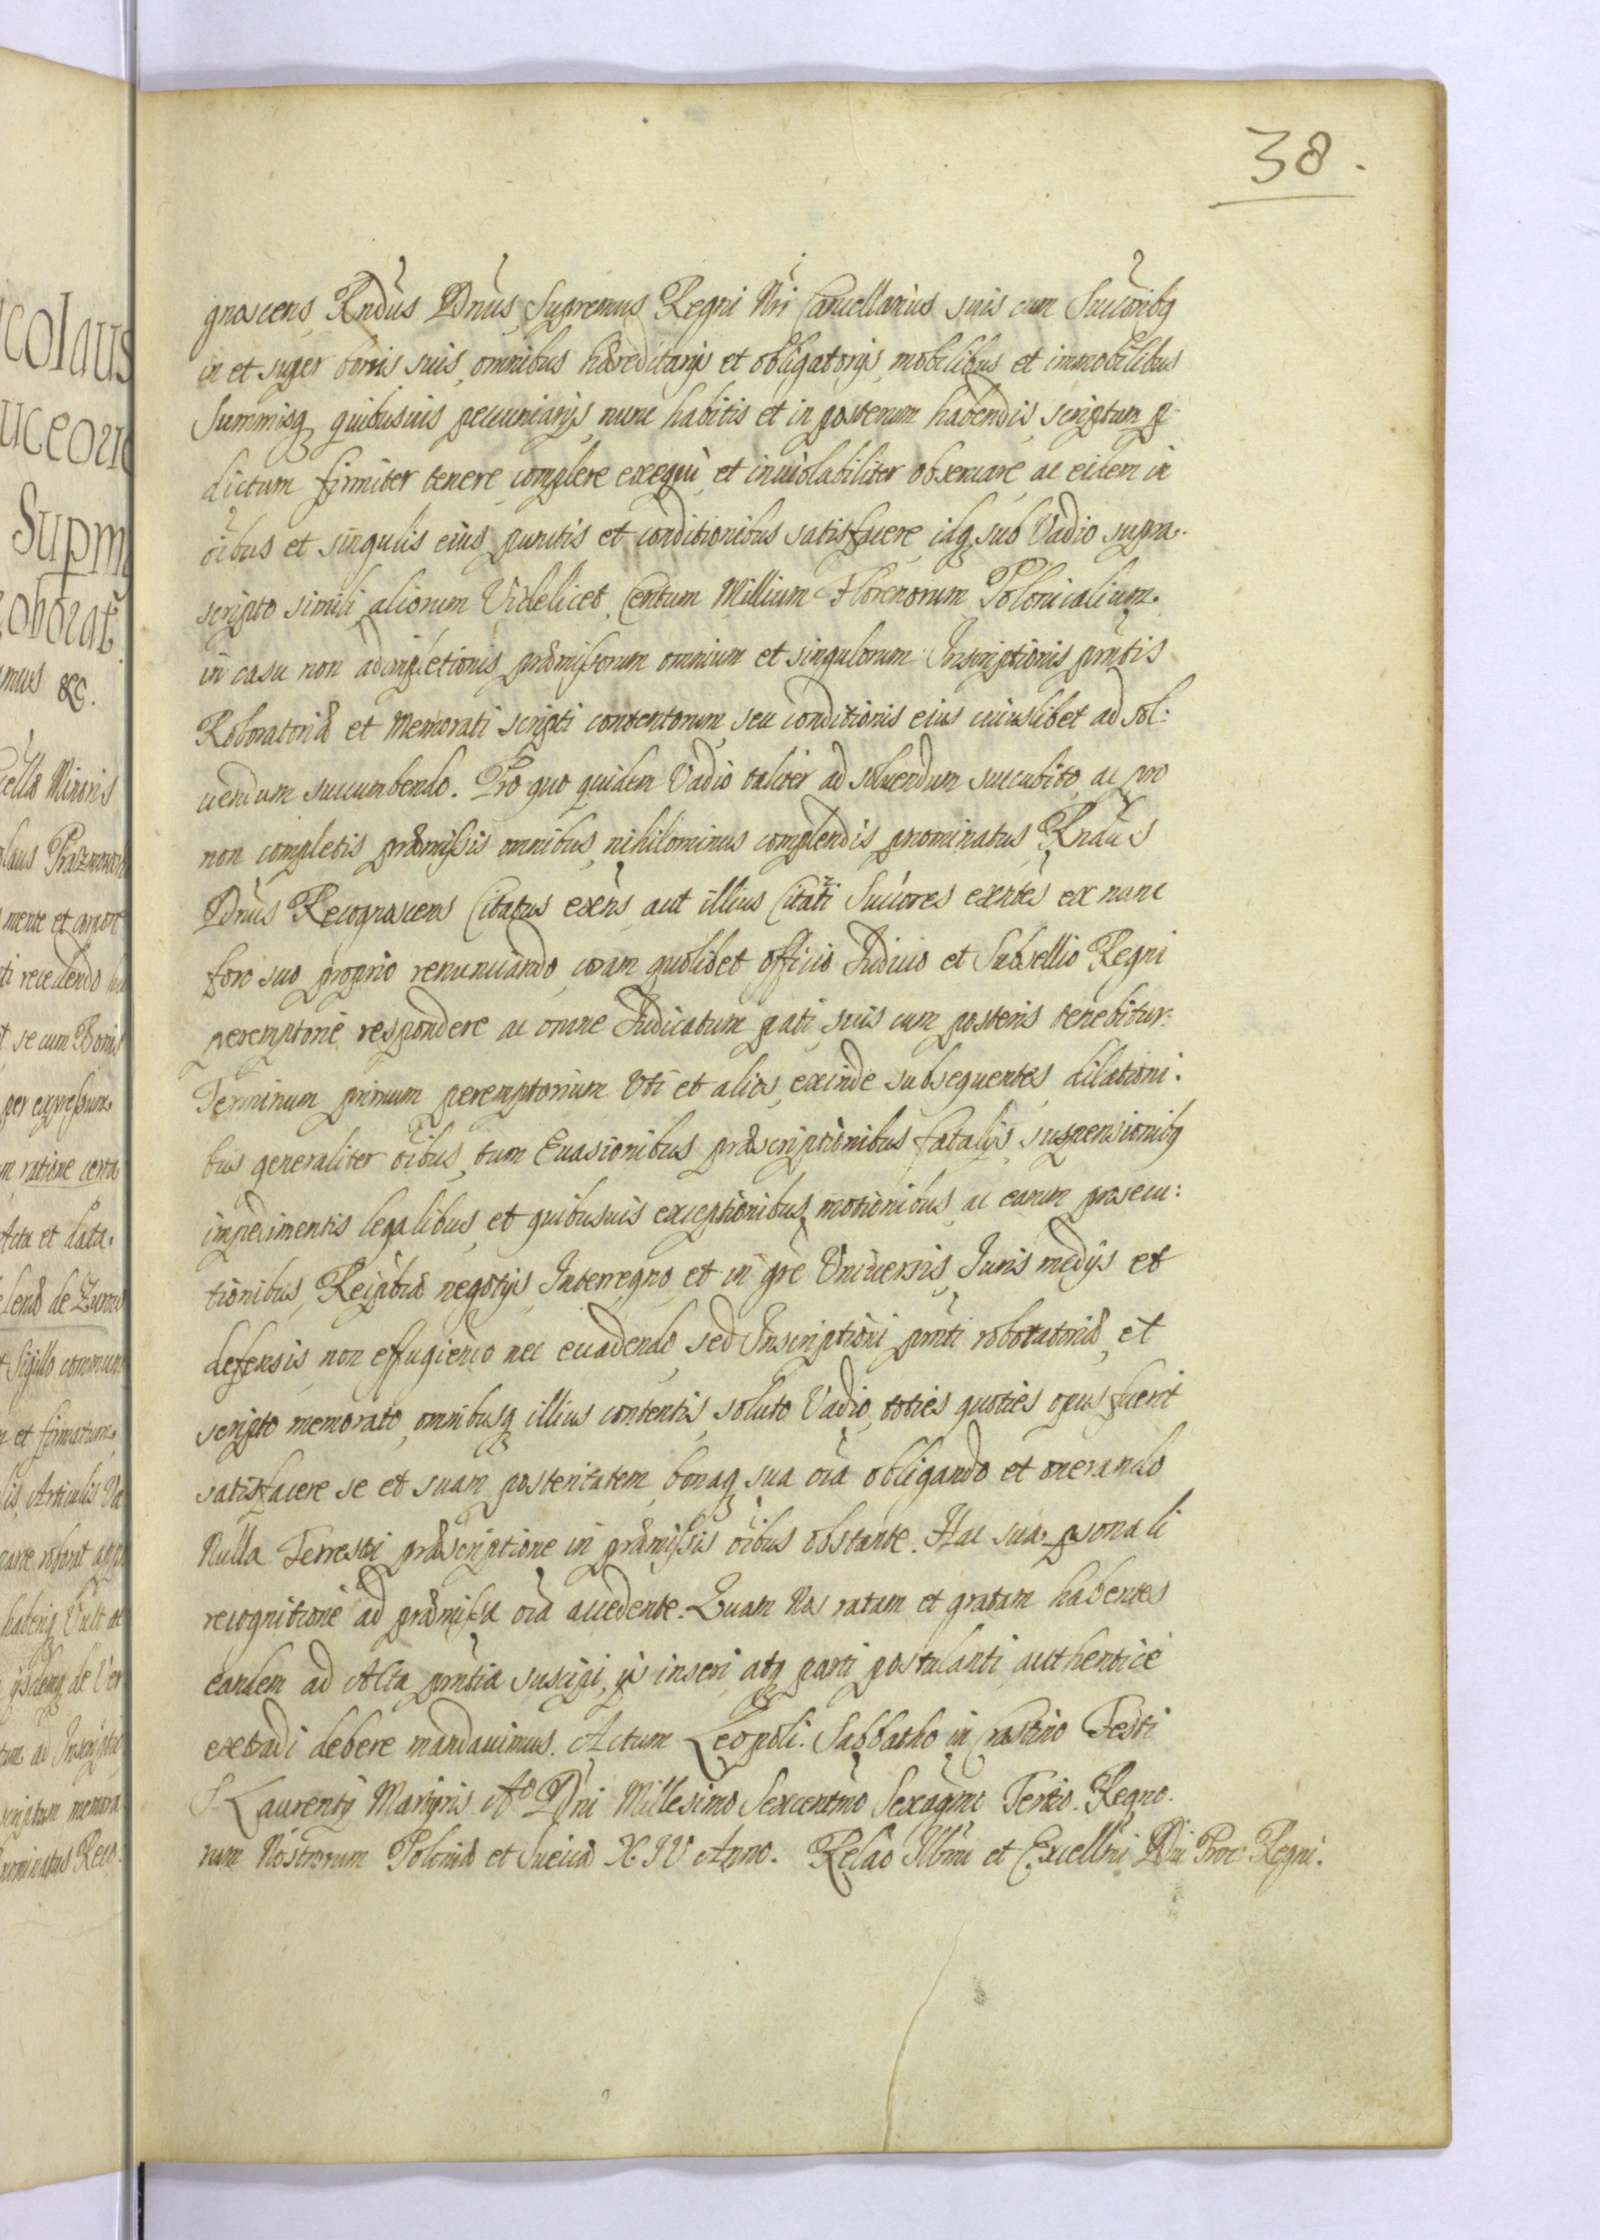 38.
gnoscens Rndus Dnus Supremus Regni Nri Cancellarius suis cum Succoribq
in et super bonis suis omnibus hæreditarijs et obligatorijs, mobilibus et immobilibus
Summisq quibusuis pecuniarijs nunc habitis et in posterum habendis, scriptum p
dictum firmiter tenere complere exequi et inuiolabiliter obseruare ac eidem in
oibus et singulis eius punctis et conditionibus satisfacere idq sub Vadio supra.
scripto simili aliorum Videlicet Centum Millium Florenorum Polonicalium.
in casu non adimpletionis præmissorum omnium et singulorum Inscriptionis prntis
Roboratoriæ et Memorati scripti contentorum, seu conditionis eius cuiuslibet ad sol:
uendum succumbendo. Pro quo quidem Vadio taliter ad soluendum succubito, ac pro
non completis præmissis omnibus, nihilominus complendis pnominatus Rndus
Dnus Recognoscens Citatus exens aut illius Citati Succores exentes ex nunc
foro suo proprio renunciando, coram quolibet officio Iudicio et Subsellio Regni
peremptorie respondere ac omne Iudicatum pati suis cum posteris tenebitur.
Terminum primum peremptorium Uti et alios exinde subsequentes, dilationi.
bus generaliter oibus, tum Euasionibus præscriptionibus fatalijs, suspensionibq
impedimentis legalibus, et quibusuis exceptionibus motionibus, ac earum prosecu:
tionibus, Reipbcæ negotijs Interregno, et in gre Vniuersis Iuris medijs et
defensis non effugiendo nec euadendo, sed Inscriptioni prnti roboratoriæ, et
scripto memorato, omnibusq illius contentis, soluto Vadio, toties quoties opus fuerit
satisfacere se et suam posteritatem, bonaq sua oia obligando et onerando
Nulla Terrestri præscriptione in præmissis oibus obstante. Hac sua psonali
recognitione ad præmissa oia accedente. Quam Nos ratam et gratam habentes
eandem ad Acta prntia suscipi, ijs inseri, atq parti postulanti authentice
extradi debere mandauimus. Actum Leopoli. Sabbatho in Crastino Festi
S. Laurentij Martyris Ao Dni Millesimo Sexcentmo Sexagmo Tertio. Regno.
rum Nostrorum Poloniæ et Sueciæ XIV Anno. Relao Illmi et Excellmi Dni Proc: Regni.